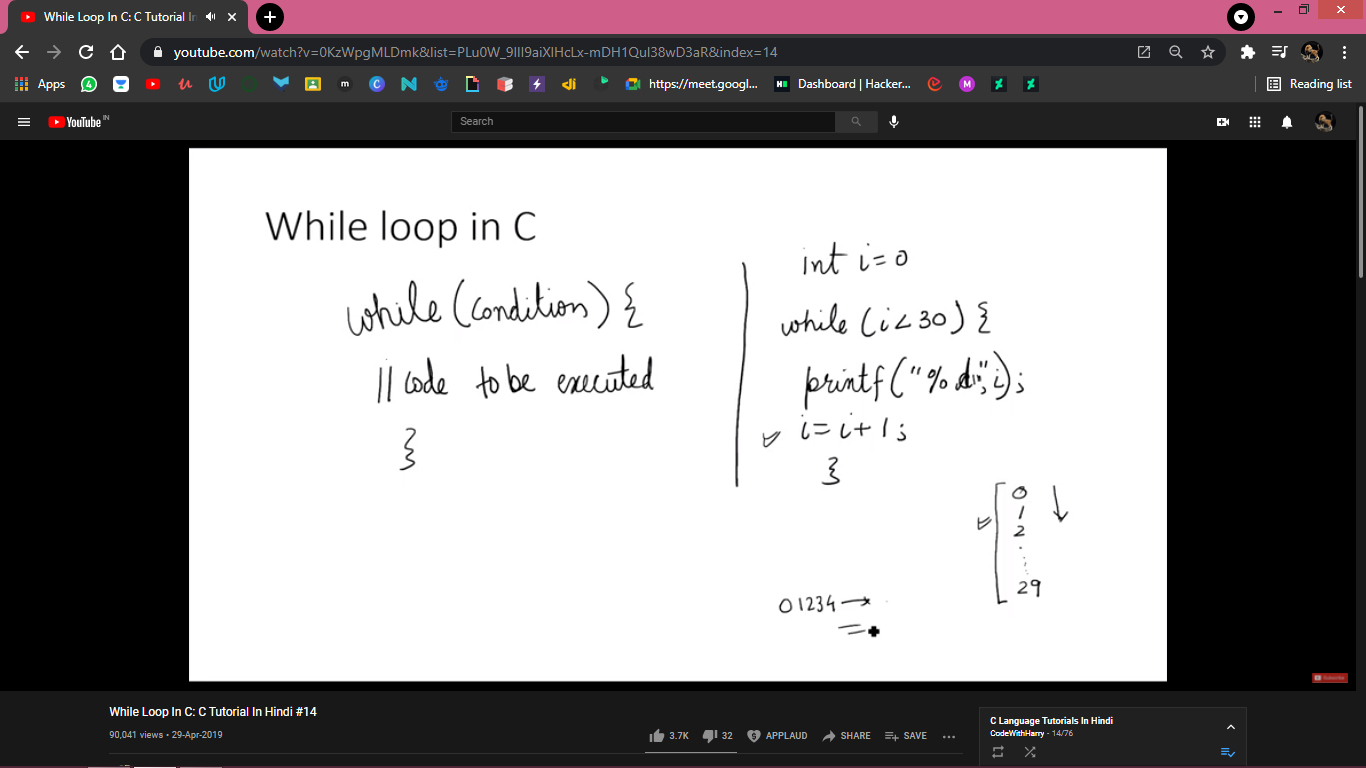 While Loop In C: C Tutorial In
youtube.com/watch?v=0KzWpgMLDmk&list=PLu0W_9lII9aiXlHcLx-mDH1Qul38wD3aR&index=14
Apps
https://meet.googl...
Dashboard | Hacker...
Reading list
YouTube IN
Search
While loop in C
while (condition) {
// code to be executed
}
int i=0
while (i<30) {
printf("%d\n", i);
i = i + 1;
}
0
1
2
29
01234
Subscribe
While Loop In C: C Tutorial In Hindi #14
90,041 views • 29-Apr-2019
3.7K
32
APPLAUD
SHARE
SAVE
C Language Tutorials In Hindi
CodeWithHarry - 14/76